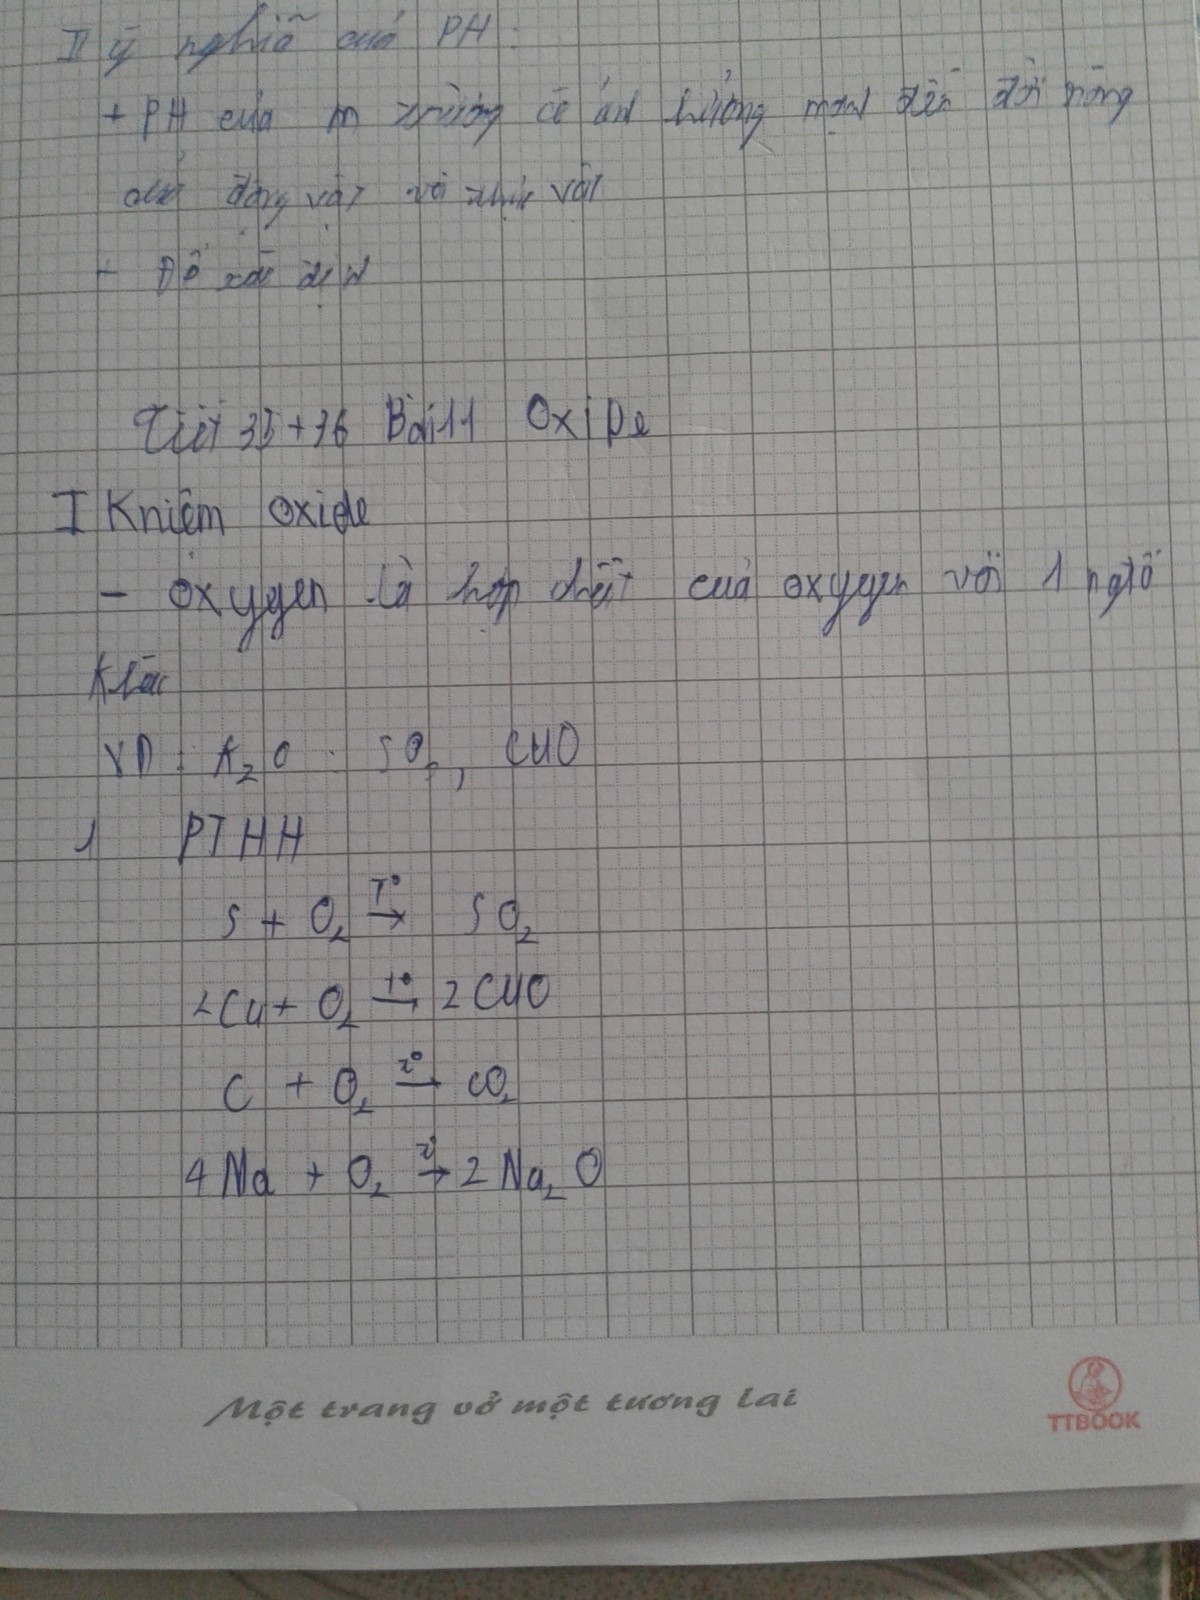 II ý nghĩa của PH:
+ PH của m trường có ảnh hưởng mạnh đến đời sống
của động vật và thực vật
- Để xác định
Tiết 35+36 Bài 11 Oxide
I K niệm oxide
- oxygen là hợp chất của oxygen với 1 ngtố
khác
VD: K₂O . SO₂, CuO
1 PTHH
S + O₂ T° → SO₂
2Cu + O₂ t° → 2CuO
C + O₂ t° → CO₂
4Na + O₂ t° → 2Na₂O
Một trang vở một tương lai
TTBOOK